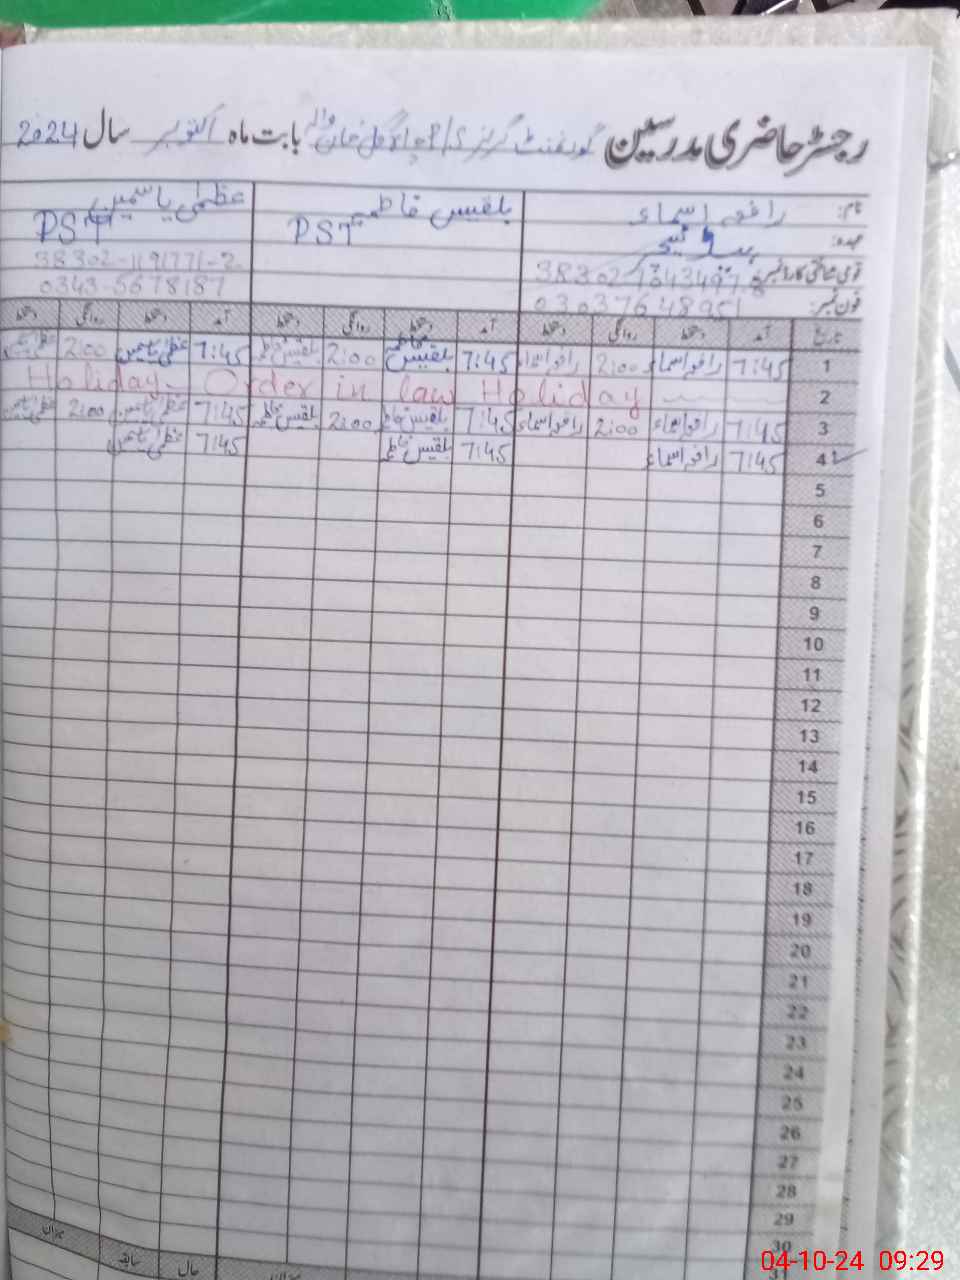 رجسٹر حاضری مدرسین گورنمنٹ گرلز P/S بابت ماہ اکتوبر سال 2024
نام: رافعہ اسماء بلقیس فاطمہ عظمیٰ یاسمین
عہدہ: ہیڈ ٹیچر PST PST
قومی شناختی کارڈ نمبر: 38302-1191771-2
فون نمبر: 03037648951 0343-5678187
تاریخ آمد دستخط روانگی دستخط آمد دستخط روانگی دستخط آمد دستخط روانگی دستخط
1 7:45 رافعہ اسماء 2:00 رافعہ اسماء 7:45 بلقیس فاطمہ 2:00 بلقیس فاطمہ 7:45 عظمیٰ یاسمین 2:00 عظمیٰ یاسمین
2 Holiday - Order in law Holiday
3 7:45 رافعہ اسماء 2:00 رافعہ اسماء 7:45 بلقیس فاطمہ 2:00 بلقیس فاطمہ 7:45 عظمیٰ یاسمین 2:00 عظمیٰ یاسمین
4 7:45 رافعہ اسماء 7:45 بلقیس فاطمہ 7:45 عظمیٰ یاسمین
5
6
7
8
9
10
11
12
13
14
15
16
17
18
19
20
21
22
23
24
25
26
27
28
29
30
31
میزان سابقہ حال میزان
04-10-24 09:29